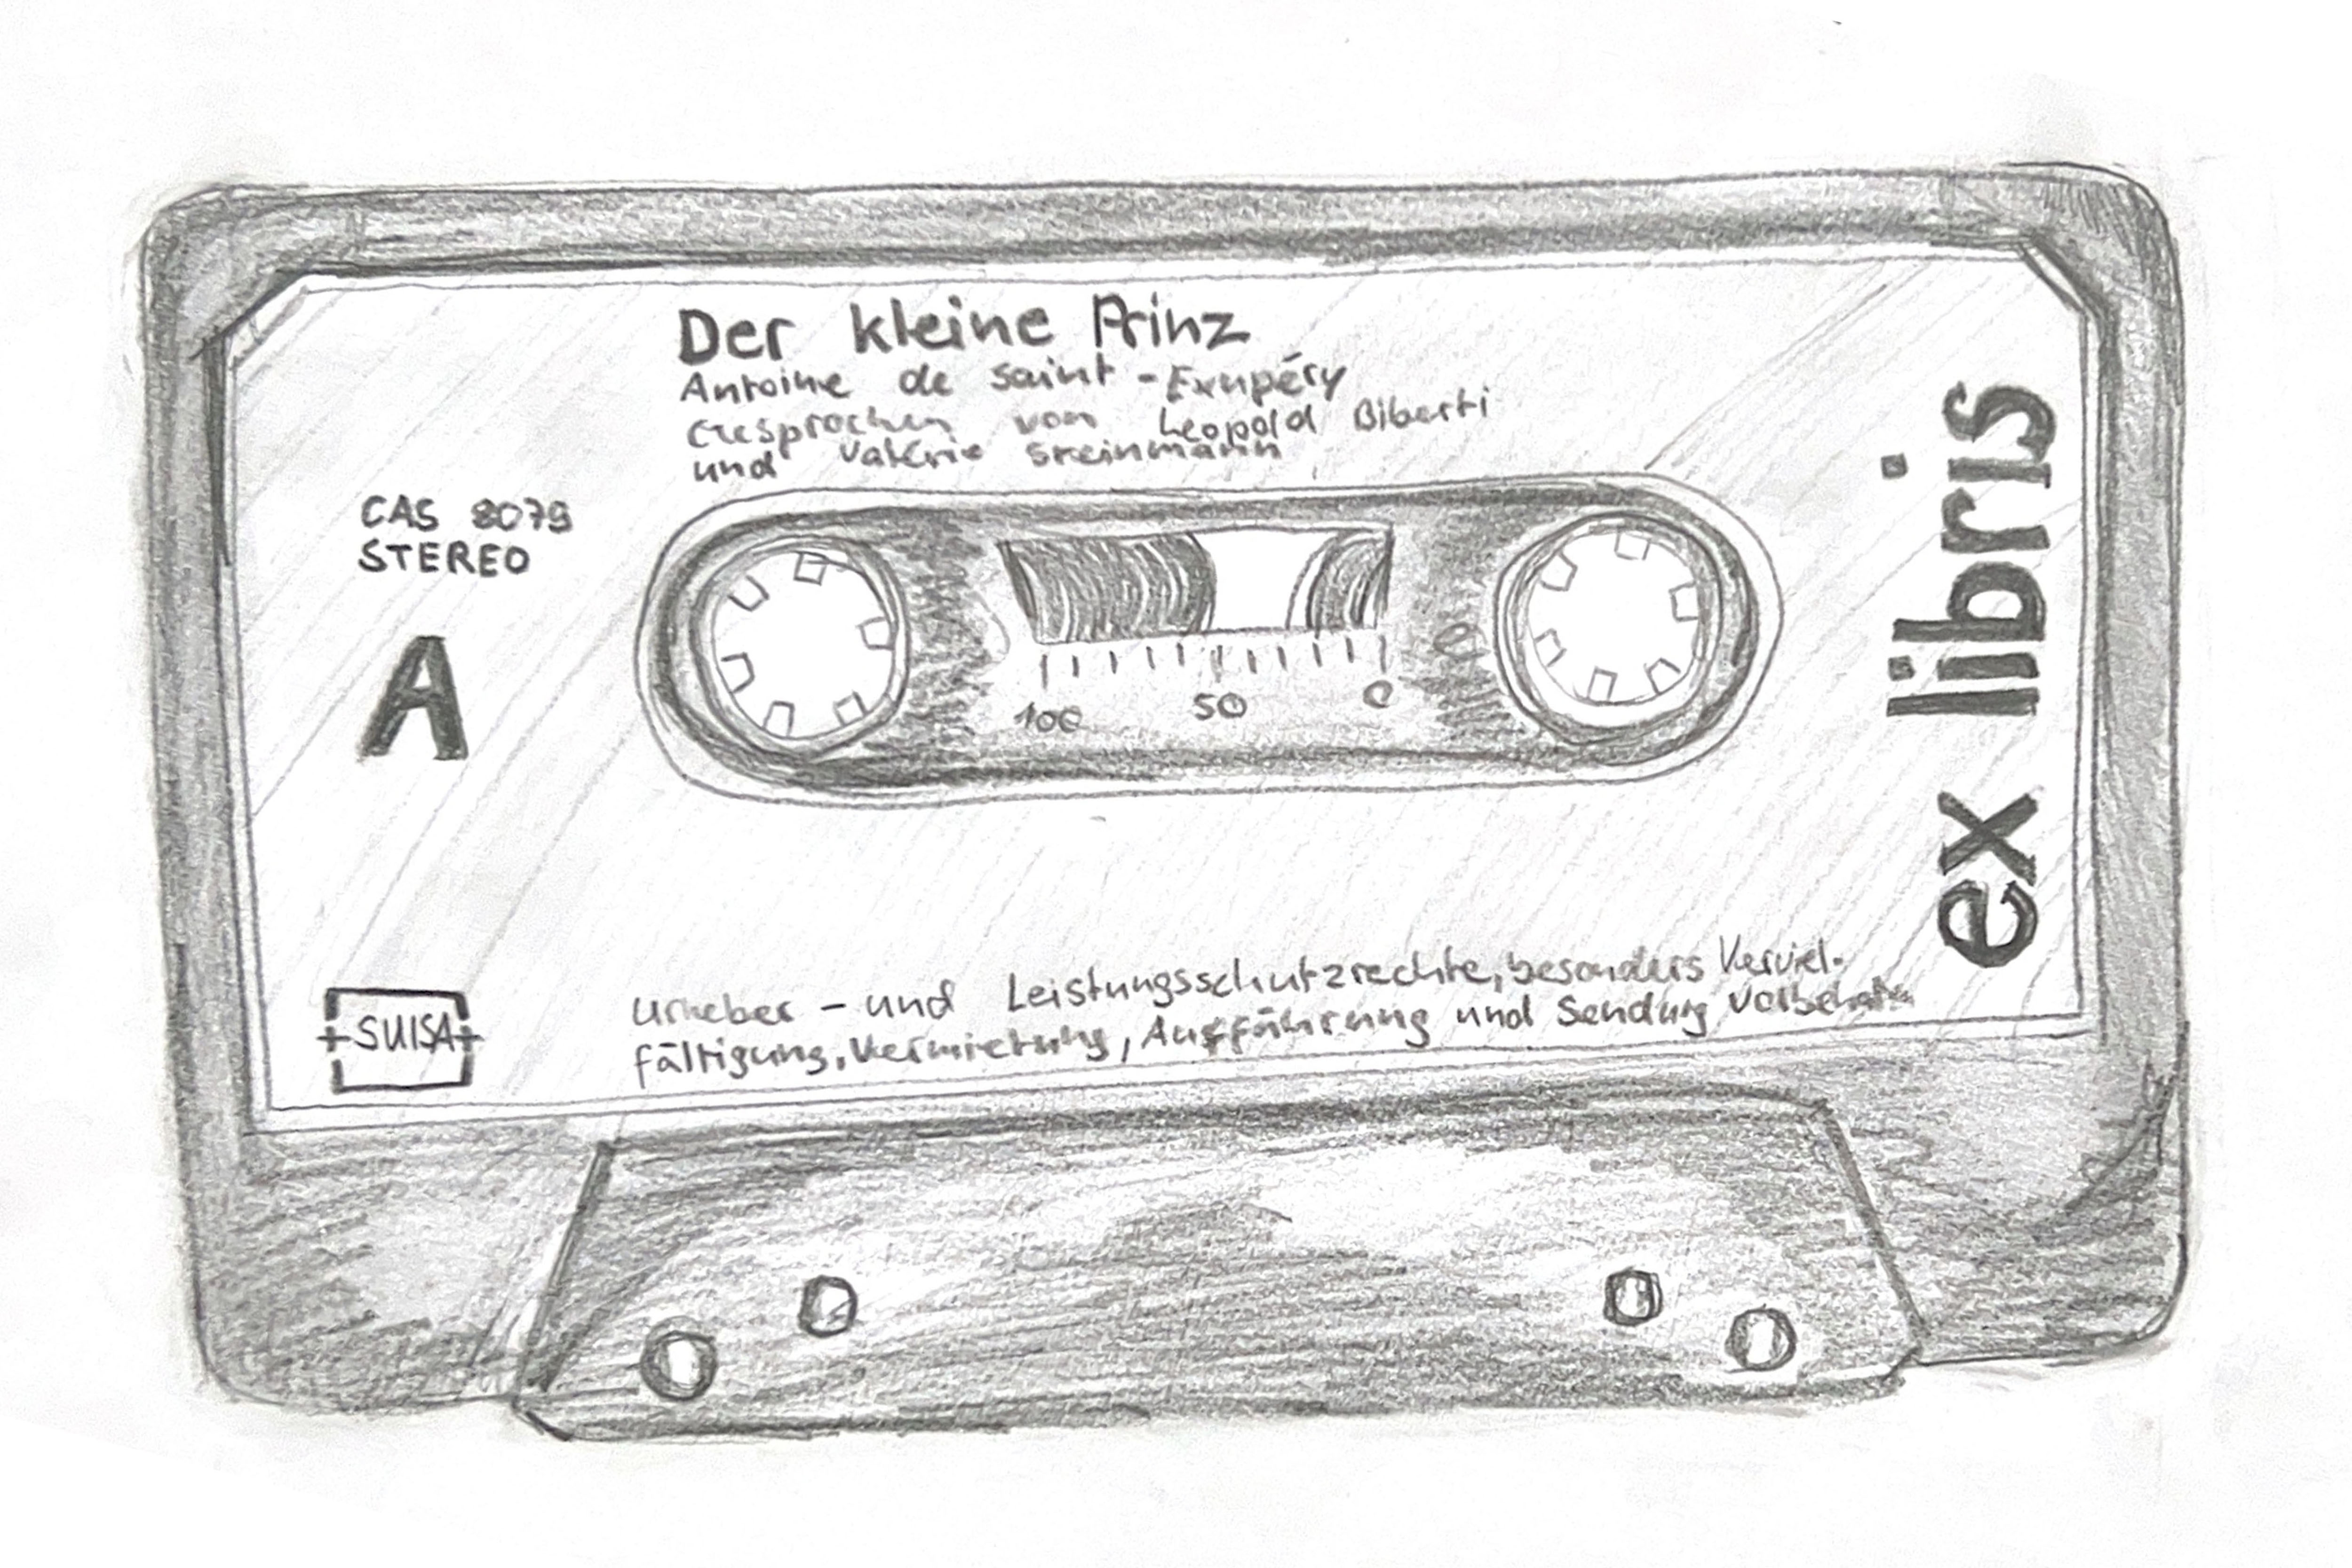 Der kleine Prinz
Antoine de Saint-Exupéry
Gesprochen von Leopold Biberti
und Valérie Steinmann
CAS 8079
STEREO
A
100 50 0
ex libris
SUISA
Urheber - und Leistungsschutzrechte, besonders Verviel-
fältigung, Vermietung, Aufführung und Sendung vorbehalten